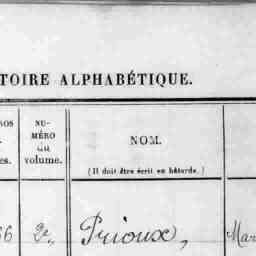 TOIRE ALPHABÉTIQUE.
ROS
es.
NU-
MÉRO
du
volume.
NOM.
(Il doit être écrit en bâtarde.)
66 2e, Prioux, Mar